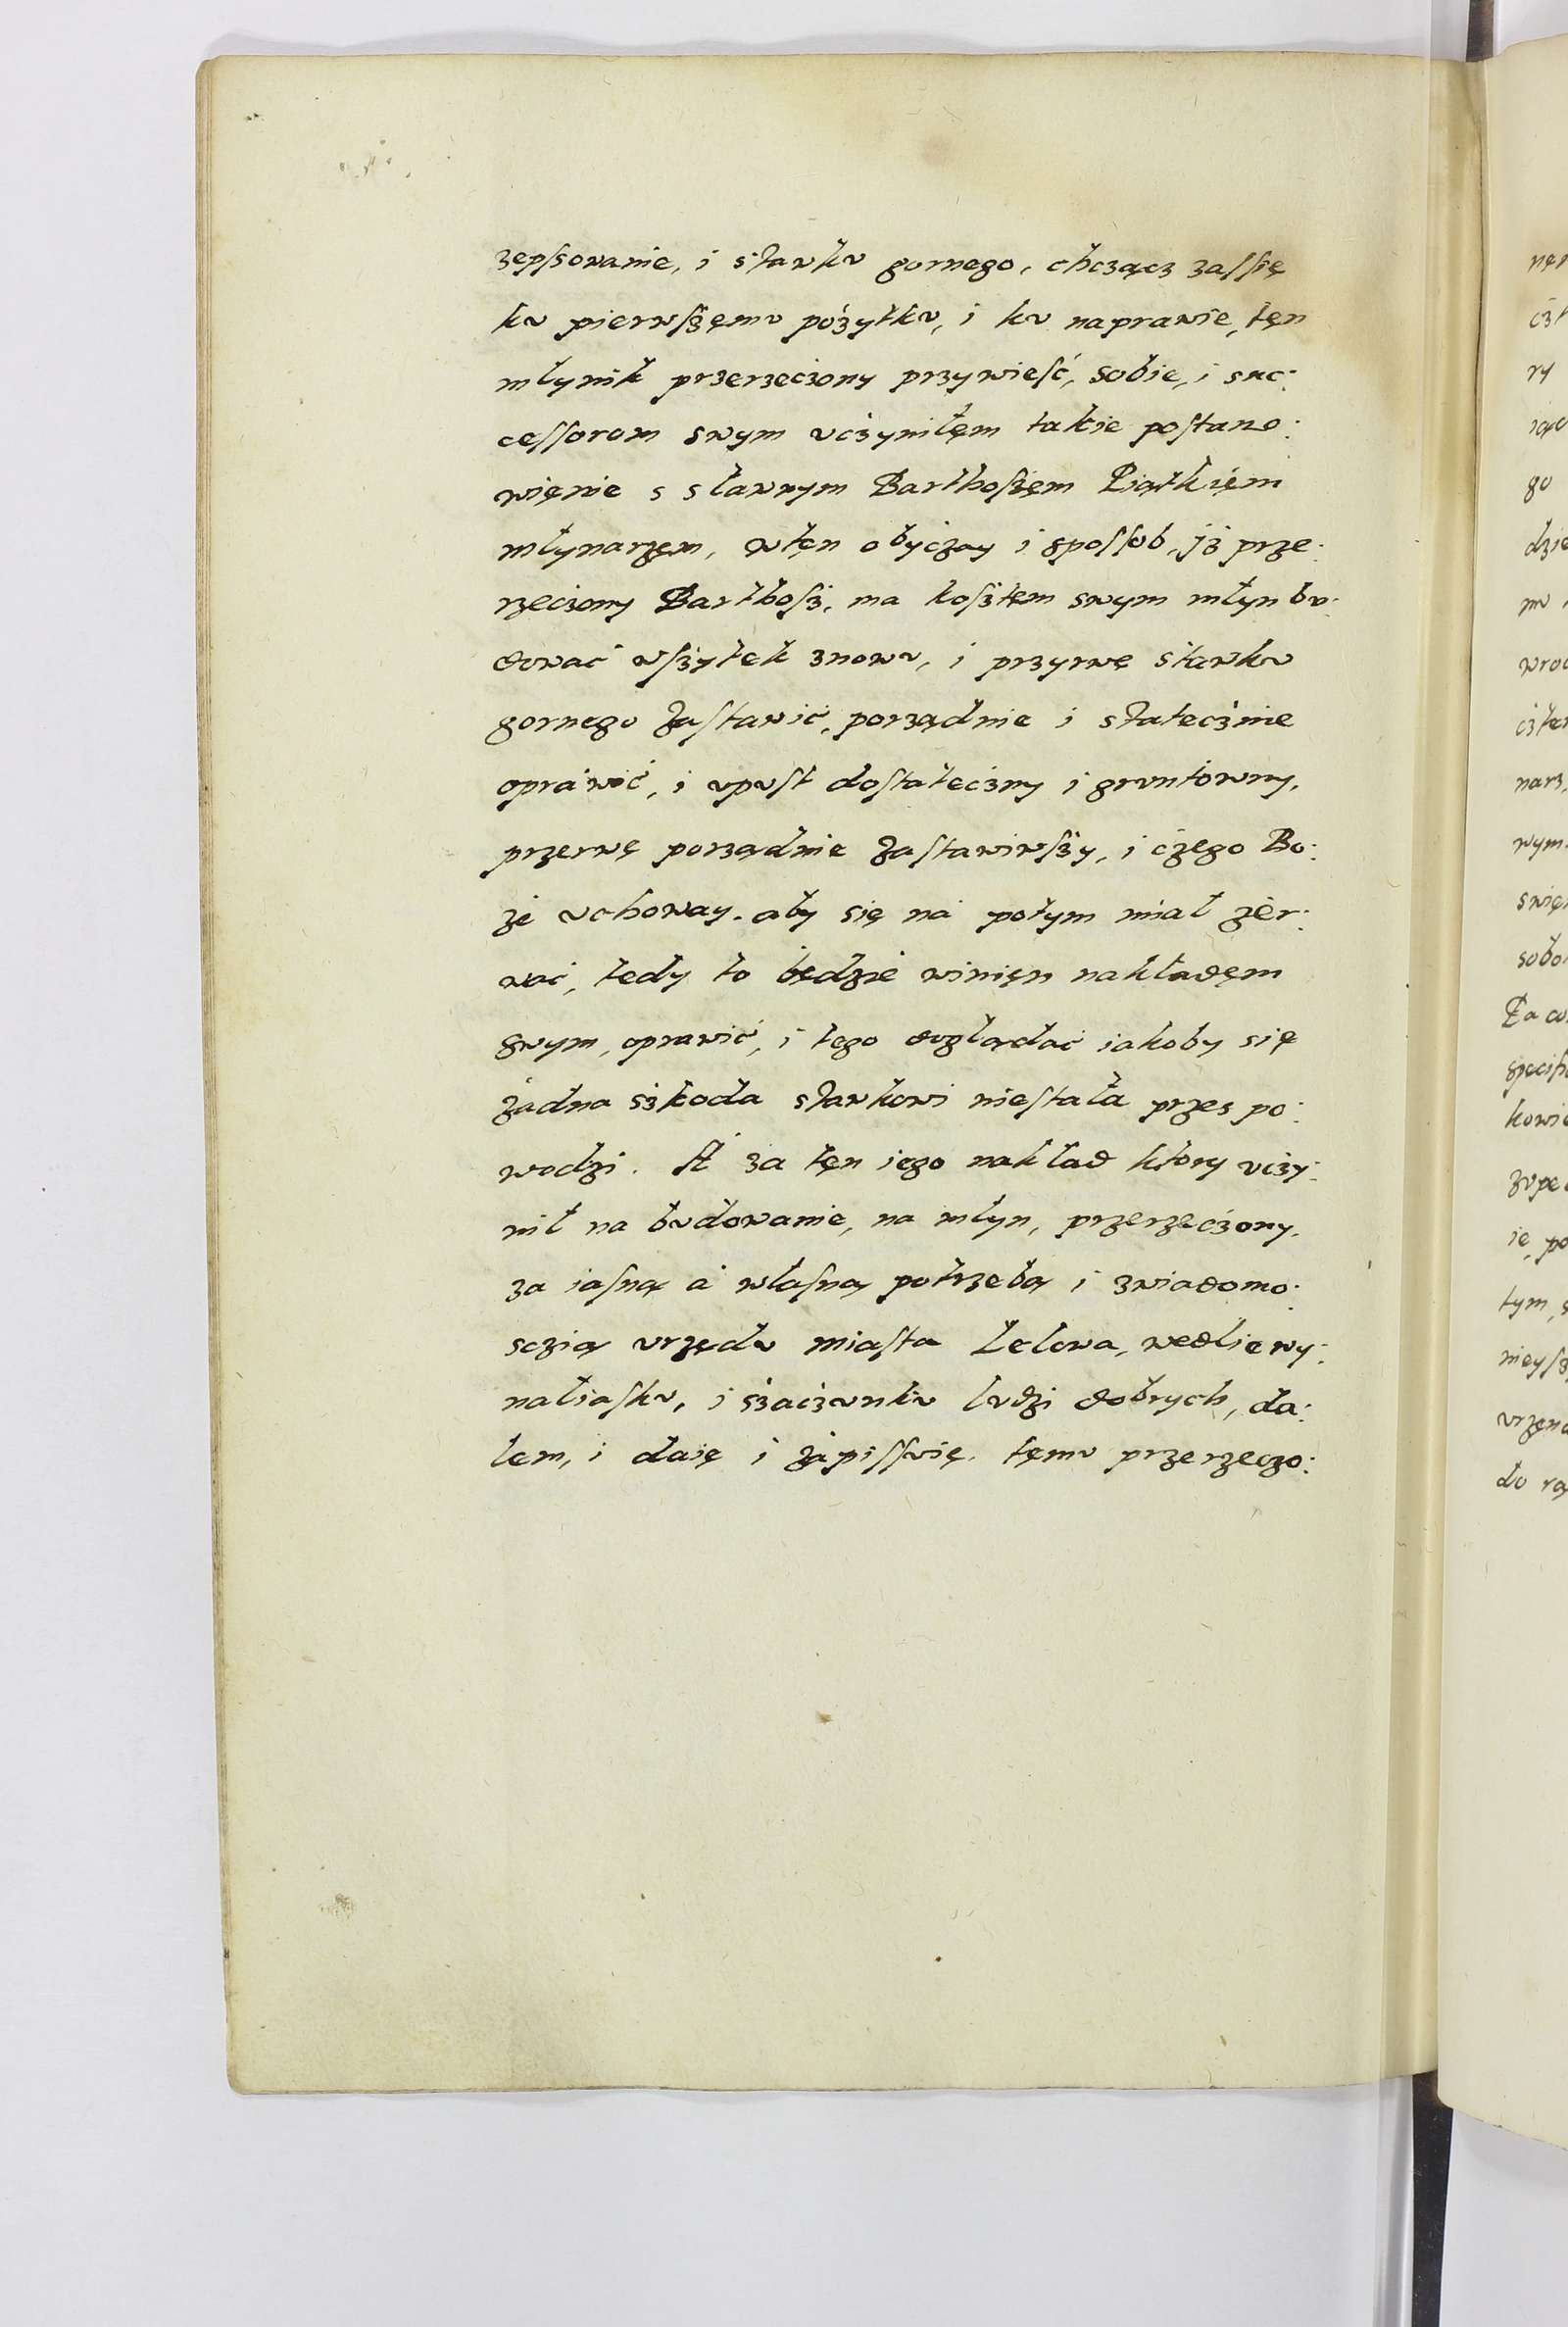 zepſowanie, i stawku gornego, chczącz zaſſię
ku pierwſzęmu pożytku, i ku naprawie, tęn
młynik przerzeczony przywieſć, sobie, i suc:
ceſſorom swym vczyniłęm takie poſtano:
więnie s sławnym Barthoſzęm Piątkięm
młynarzęm, wtęn obyczay i spoſſob, jż prze:
rzeczony Barthoſz, ma koſztem swym młyn bu:
dować wſzytek znowu, i przyrwę stawku
gornego zaſtawić, porządnie i statecznie
oprawić, i vpuſt doſtateczny i gruntowny,
przerwę porządnie zaſtawiwſzy, i czego Bo:
że vchoway. aby się na potym miał zer:
wać, tedy to będzie winięn nakładęm
swym, oprawić, i tego doglądać iakoby się
żadna szkoda stawkowi nieſtała przes po:
wodzi. A za tęn iego nakład ktory vczy:
nił na budowanie, na młyn, przerzeczony,
za iaſną a własną potrzebą i zwiadomo:
sczią vrzędu miaſta Lelowa, wedlie wy:
naliaſku, i szaczunku ludzi dobrych, da:
łem, i daię i zapiſſuię, tęmu przerzeczo:
nęr
czt
ry
go
dzie
mu
wroc
narz,
wym
swięn
sobo
specifi
kowie
zupe
ie, po
tym, s
nieyſz
vrzęnd
do rą